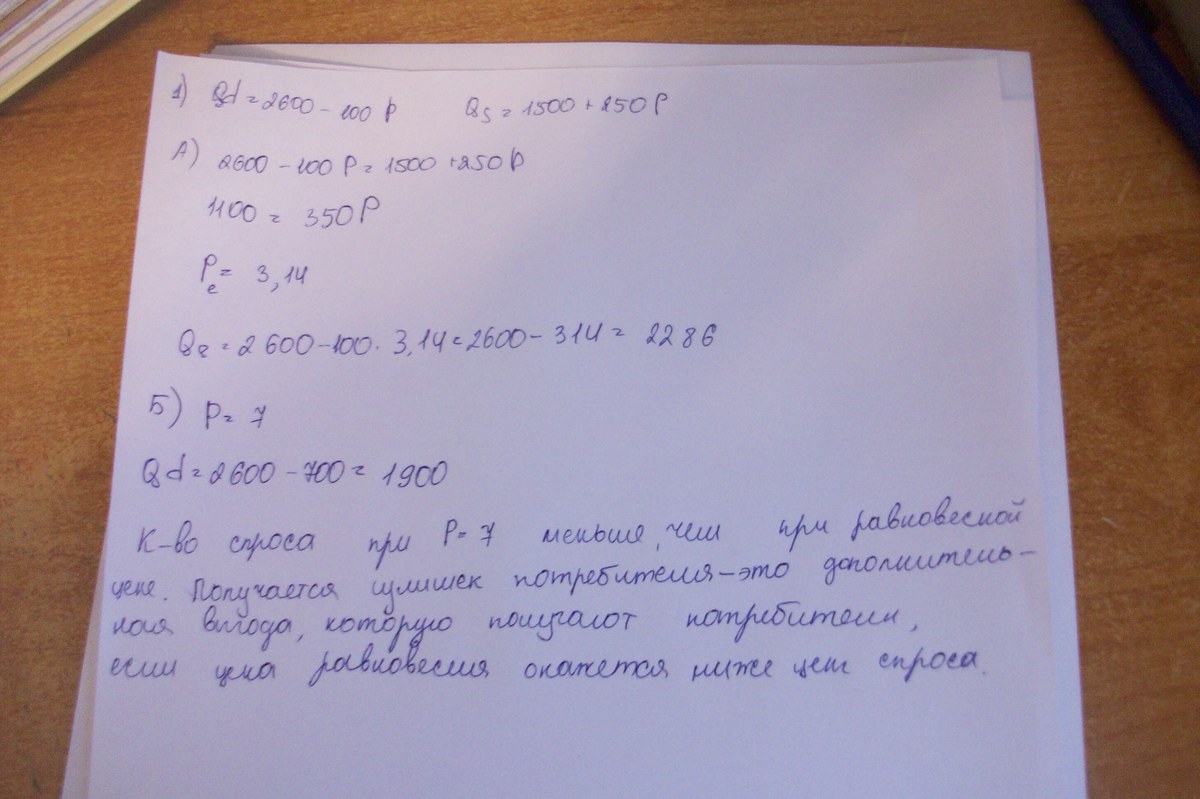 1) Qd = 2600 - 100 P Qs = 1500 + 250 P
А) 2600 - 100 P = 1500 + 250 P
1100 = 350 P
Pe = 3,14
Qe = 2 600 - 100 · 3,14 = 2600 - 314 = 2286
Б) P = 7
Qd = 2600 - 700 = 1900
К-во спроса при P = 7 меньше, чем при равновесной
цене. Получается излишек потребителя – это дополнитель-
ная выгода, которую получают потребители,
если цена равновесия окажется ниже цен спроса.